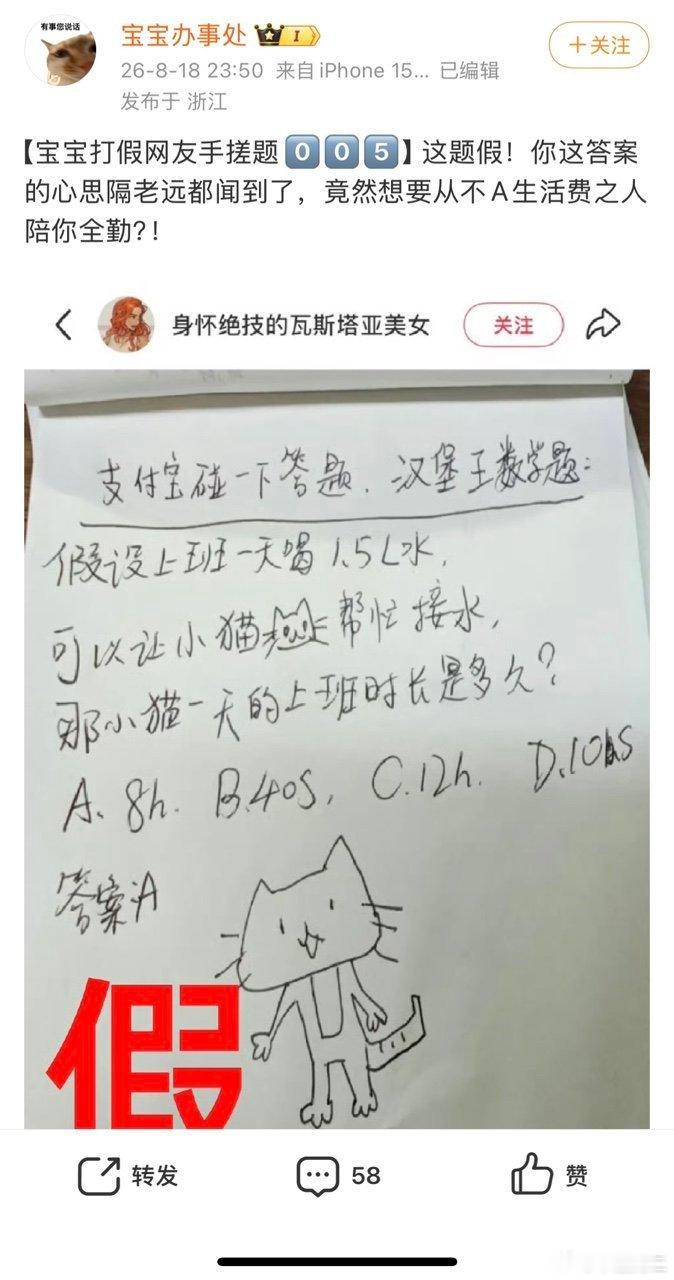 有事您说话
宝宝办事处 I
+关注
26-8-18 23:50 来自 iPhone 15... 已编辑
发布于 浙江
【宝宝打假网友手搓题005】这题假!你这答案
的心思隔老远都闻到了,竟然想要从不A生活费之人
陪你全勤?!
身怀绝技的瓦斯塔亚美女
关注
支付宝碰一下答题.汉堡王数学题:
假设上班一天喝1.5L水,
可以让小猫帮忙接水,
那小猫一天的上班时长是多久?
A、8h. B.40S, C.12h. D.10S
答案:A
假
转发
58
赞